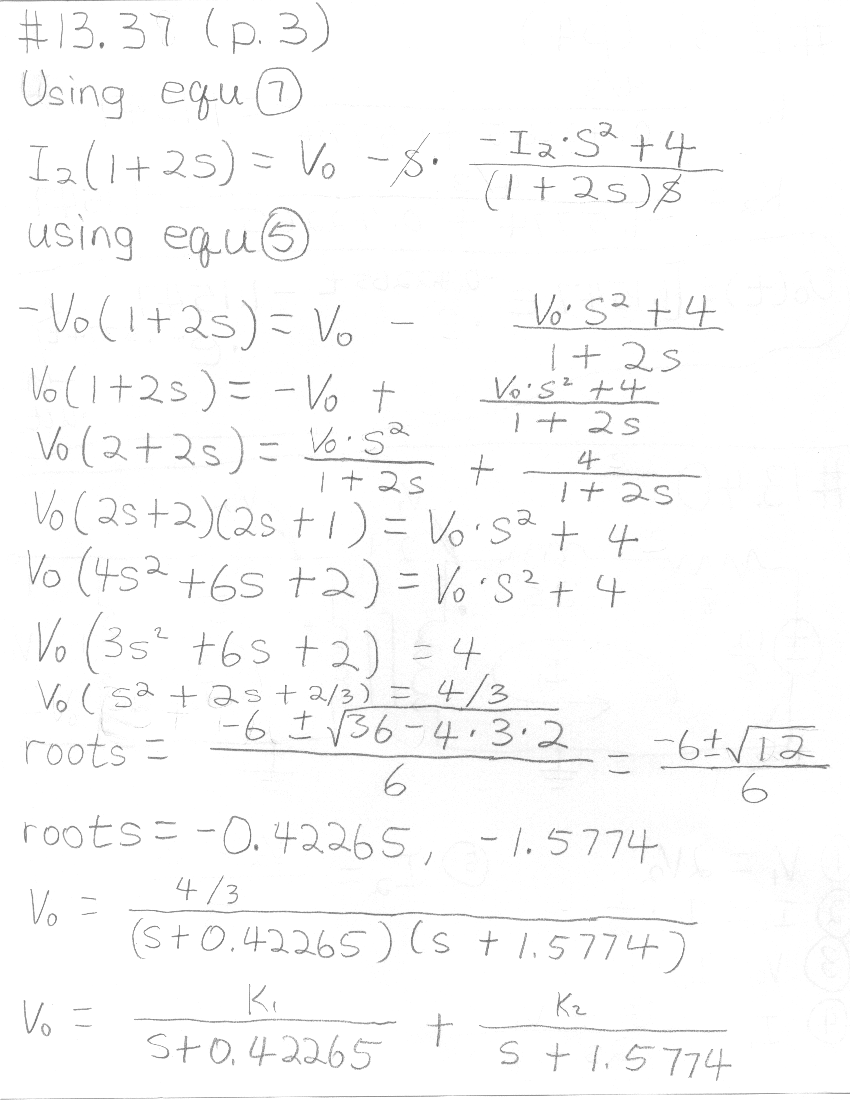 #13.37 (p. 3)
Using equ ⑦
I₂(1+2s) = V₀ - s̸ · (-I₂·S² + 4)/((1 + 2s)s̸)
using equ ⑤
-V₀(1+2s) = V₀ - (V₀·S² + 4)/(1 + 2s)
V₀(1+2s) = -V₀ + (V₀·s² + 4)/(1 + 2s)
V₀(2+2s) = (V₀·S²)/(1+2s) + 4/(1+2s)
V₀(2s+2)(2s+1) = V₀·S² + 4
V₀(4s² +6s +2) = V₀·S² + 4
V₀(3s² +6s +2) = 4
V₀(s² + 2s + 2/3) = 4/3
roots = (-6 ± √(36-4·3·2))/6 = (-6±√12)/6
roots = -0.42265, -1.5774
V₀ = (4/3)/((s+0.42265)(s + 1.5774))
V₀ = K₁/(s+0.42265) + K₂/(s + 1.5774)